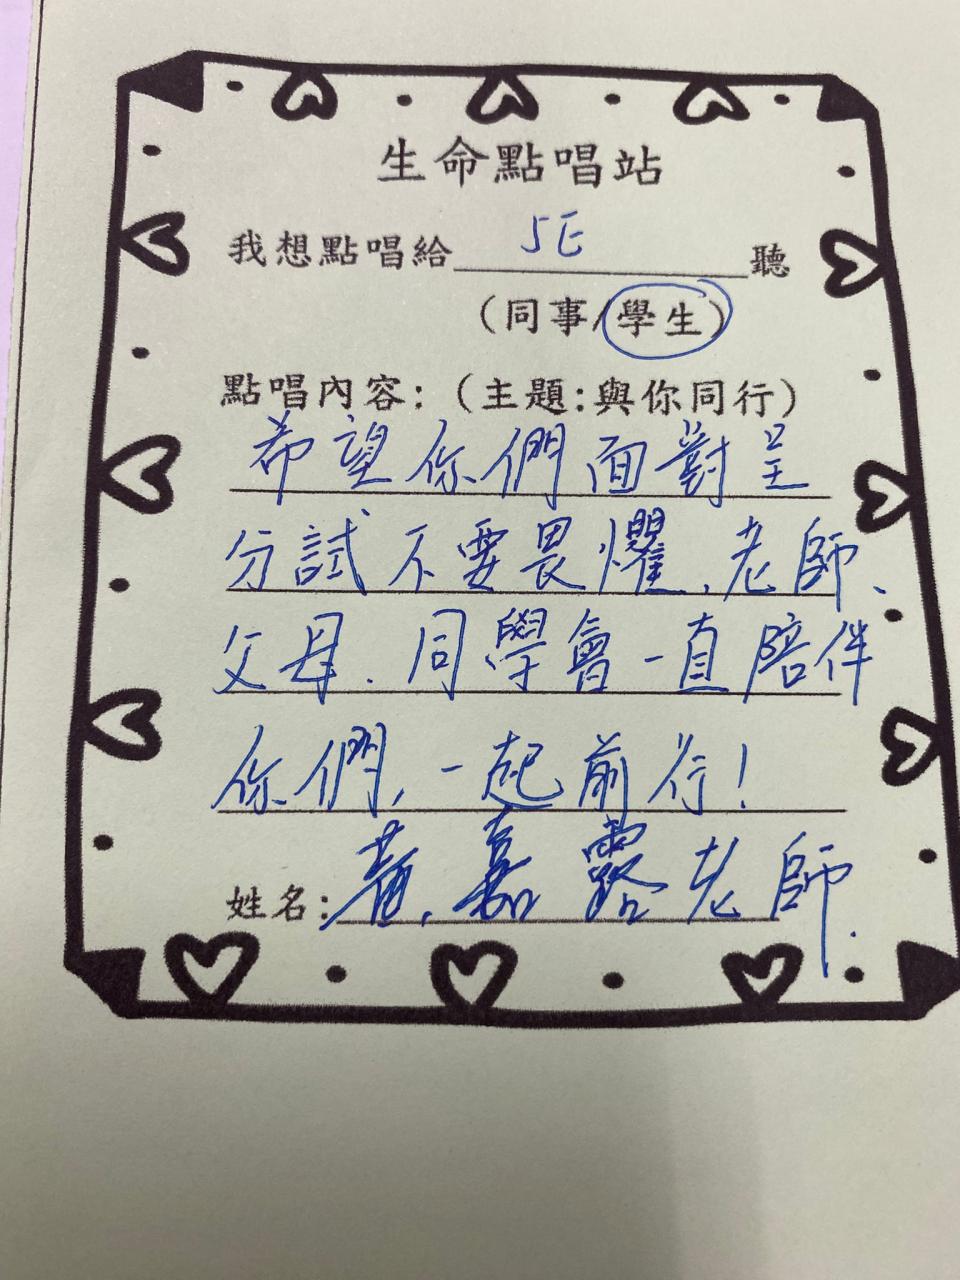 生命點唱站
我想點唱給 5E 聽
(同事/學生)
點唱內容:(主題:與你同行)
希望你們面對呈
分試不要畏懼、老師、
父母、同學會一直陪伴
你們,一起前行!
姓名: 黃嘉露老師